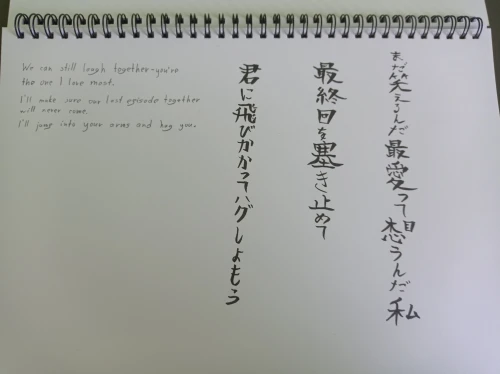 We can still laugh together-you're
the one I love most.
I'll make sure our last episode together
will never come.
I'll jump into your arms and hug you.
まだ笑えるんだ最愛って想うんだ私
最終回を塞き止めて
君に飛びかかってハグしよもう